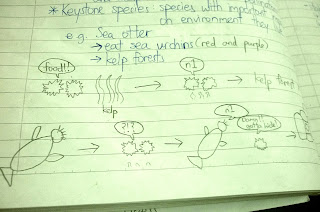 * Keystone species: species with important
on environment they
e.g. Sea otter
→ eat sea urchins (red and purple)
→ kelp forests
food!!
n1
→ kelp forest
kelp
?!?
n1